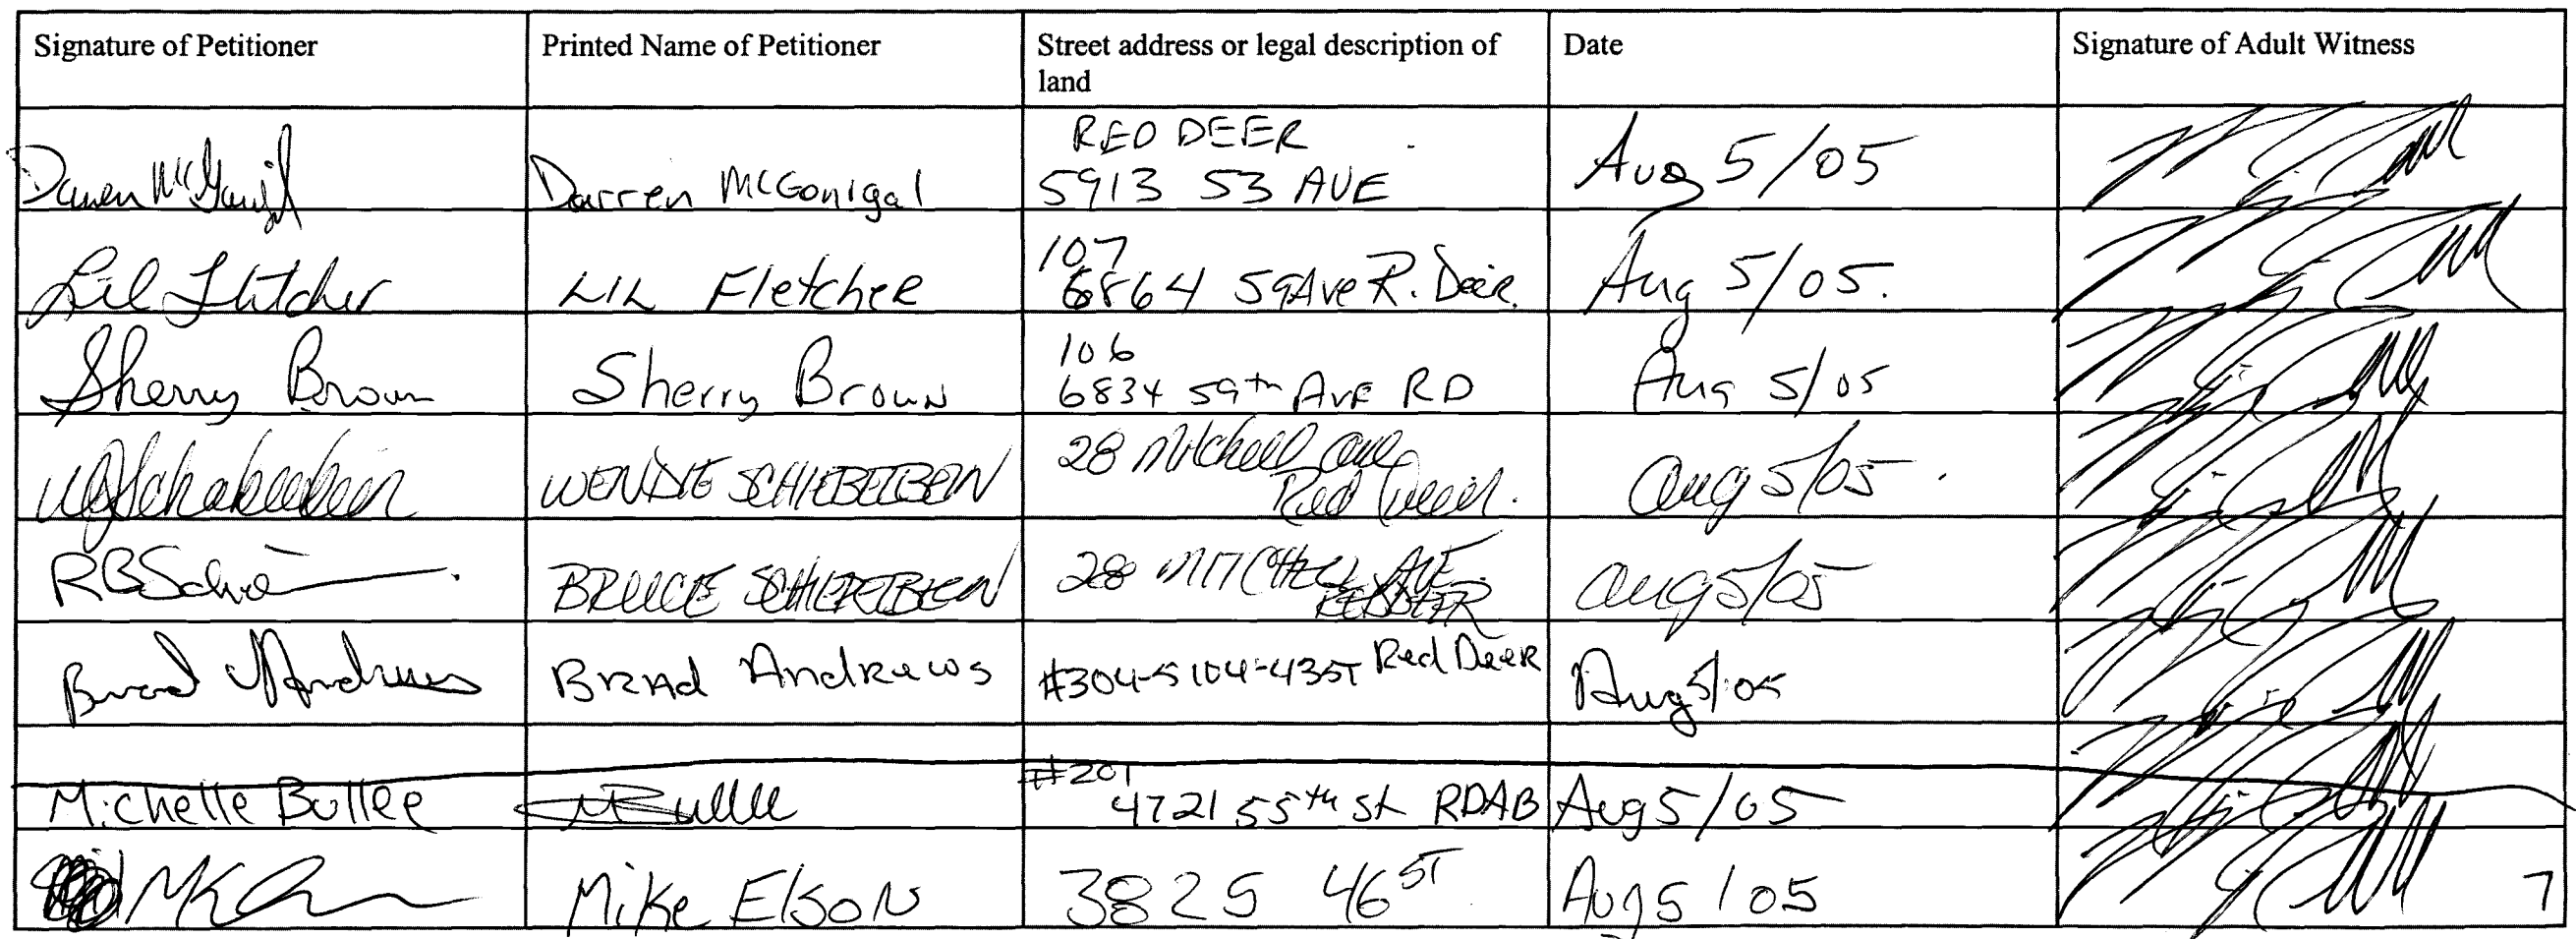 Signature of Petitioner Printed Name of Petitioner Street address or legal description of land Date Signature of Adult Witness
RED DEER
Darren McGonigal Darren McGonigal 5913 53 AVE Aug 5/05
107
Lil Fletcher LIL Fletcher 6864 59 Ave R. Deer. Aug 5/05.
106
Sherry Brown Sherry Brown 6834 59th Ave RD Aug 5/05
28 Mitchell Ave
WENDIE SCHIEBELBEIN Red Deer. Aug 5/05
BRUCE SCHIEBELBEIN 28 MITCHELL AVE Aug 5/05
RED DEER
Brad Andrews Brad Andrews #304-5104-43ST Red Deer Aug 5/05
#201
Michelle Bullee MBullee 4721 55th St RDAB Aug 5/05
Mike Elson 3825 46 ST Aug 5/05
7